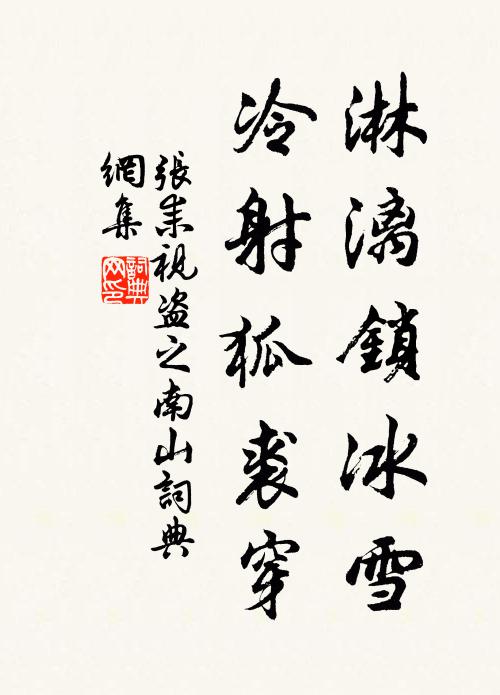 淋漓鎖冰雪
冷射狐裘穿
張耒視盜之南山詞典
網集
詞典網印